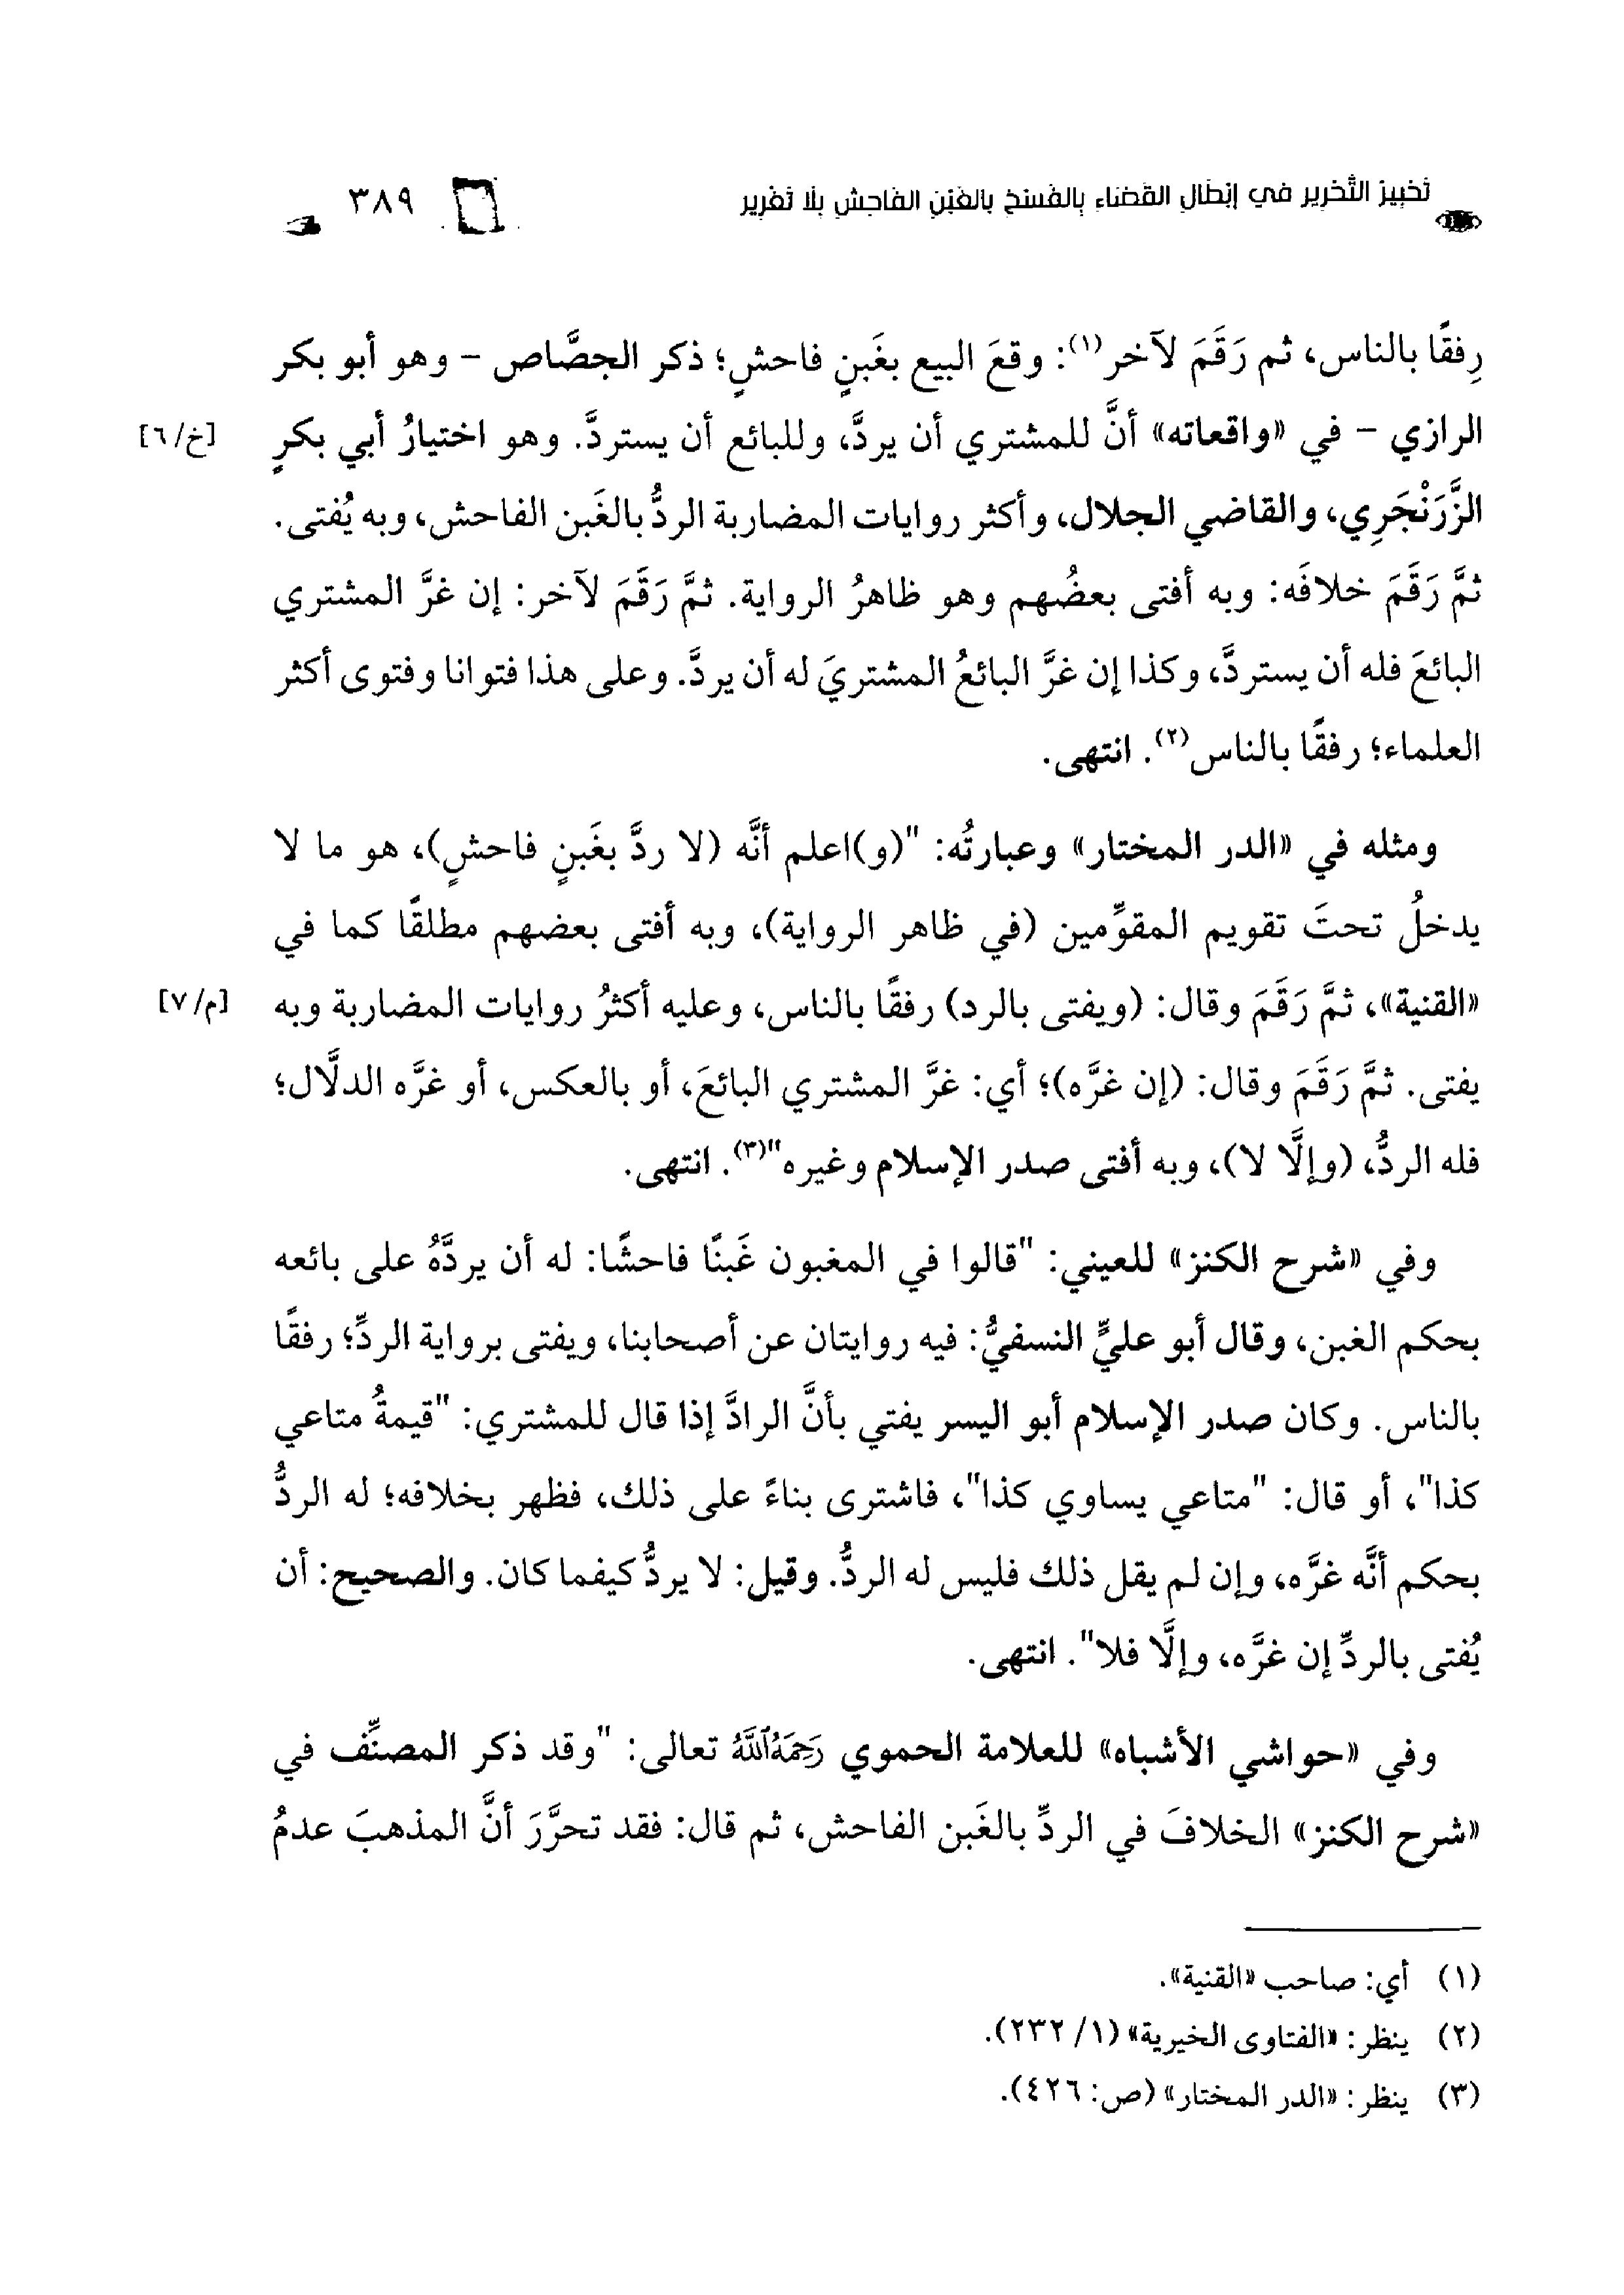 تَحْبِيرُ التَّحْرِيرِ فِي إِبْطَالِ القَضَاءِ بِالفَسْخِ بِالغَبْنِ الفَاحِشِ بِلَا تَغْرِيرٍ ٣٨٩
رِفقًا بالناس، ثم رَقَمَ لآخر(١): وقعَ البيع بغَبنٍ فاحشٍ؛ ذكر الجصَّاص - وهو أبو بكر
الرازي - في «واقعاته» أنَّ للمشتري أن يردَّ، وللبائع أن يستردَّ. وهو اختيارُ أبي بكرٍ [خ/٦]
الزَّرَنْجَرِي، والقاضي الجلال، وأكثر روايات المضاربة الردُّ بالغَبن الفاحش، وبه يُفتى.
ثمَّ رَقَمَ خلافَه: وبه أفتى بعضُهم وهو ظاهرُ الرواية. ثمَّ رَقَمَ لآخر: إن غرَّ المشتري
البائعَ فله أن يستردَّ، وكذا إن غرَّ البائعُ المشتريَ له أن يردَّ. وعلى هذا فتوانا وفتوى أكثر
العلماء؛ رفقًا بالناس(٢). انتهى.
ومثله في «الدر المختار» وعبارتُه: "(و)اعلم أنَّه (لا ردَّ بغَبنٍ فاحشٍ)، هو ما لا
يدخلُ تحتَ تقويم المقوِّمين (في ظاهر الرواية)، وبه أفتى بعضهم مطلقًا كما في
«القنية»، ثمَّ رَقَمَ وقال: (ويفتى بالرد) رفقًا بالناس، وعليه أكثرُ روايات المضاربة وبه [م/٧]
يفتى. ثمَّ رَقَمَ وقال: (إن غرَّه)؛ أي: غرَّ المشتري البائعَ، أو بالعكس، أو غرَّه الدلَّال؛
فله الردُّ، (وإلَّا لا)، وبه أفتى صدر الإسلام وغيره"(٣). انتهى.
وفي «شرح الكنز» للعيني: "قالوا في المغبون غَبنًا فاحشًا: له أن يردَّهُ على بائعه
بحكم الغبن، وقال أبو عليٍّ النسفيُّ: فيه روايتان عن أصحابنا، ويفتى برواية الردِّ؛ رفقًا
بالناس. وكان صدر الإسلام أبو اليسر يفتي بأنَّ الرادَّ إذا قال للمشتري: "قيمةُ متاعي
كذا"، أو قال: "متاعي يساوي كذا"، فاشترى بناءً على ذلك، فظهر بخلافه؛ له الردُّ
بحكم أنَّه غرَّه، وإن لم يقل ذلك فليس له الردُّ. وقيل: لا يردُّ كيفما كان. والصحيح: أن
يُفتى بالردِّ إن غرَّه، وإلَّا فلا". انتهى.
وفي «حواشي الأشباه» للعلامة الحموي رَحِمَهُ ٱللَّهُ تعالى: "وقد ذكر المصنِّف في
«شرح الكنز» الخلافَ في الردِّ بالغَبن الفاحش، ثم قال: فقد تحرَّرَ أنَّ المذهبَ عدمُ
(١) أي: صاحب «القنية».
(٢) ينظر: «الفتاوى الخيرية» (١/ ٢٣٢).
(٣) ينظر: «الدر المختار» (ص: ٤٢٦).